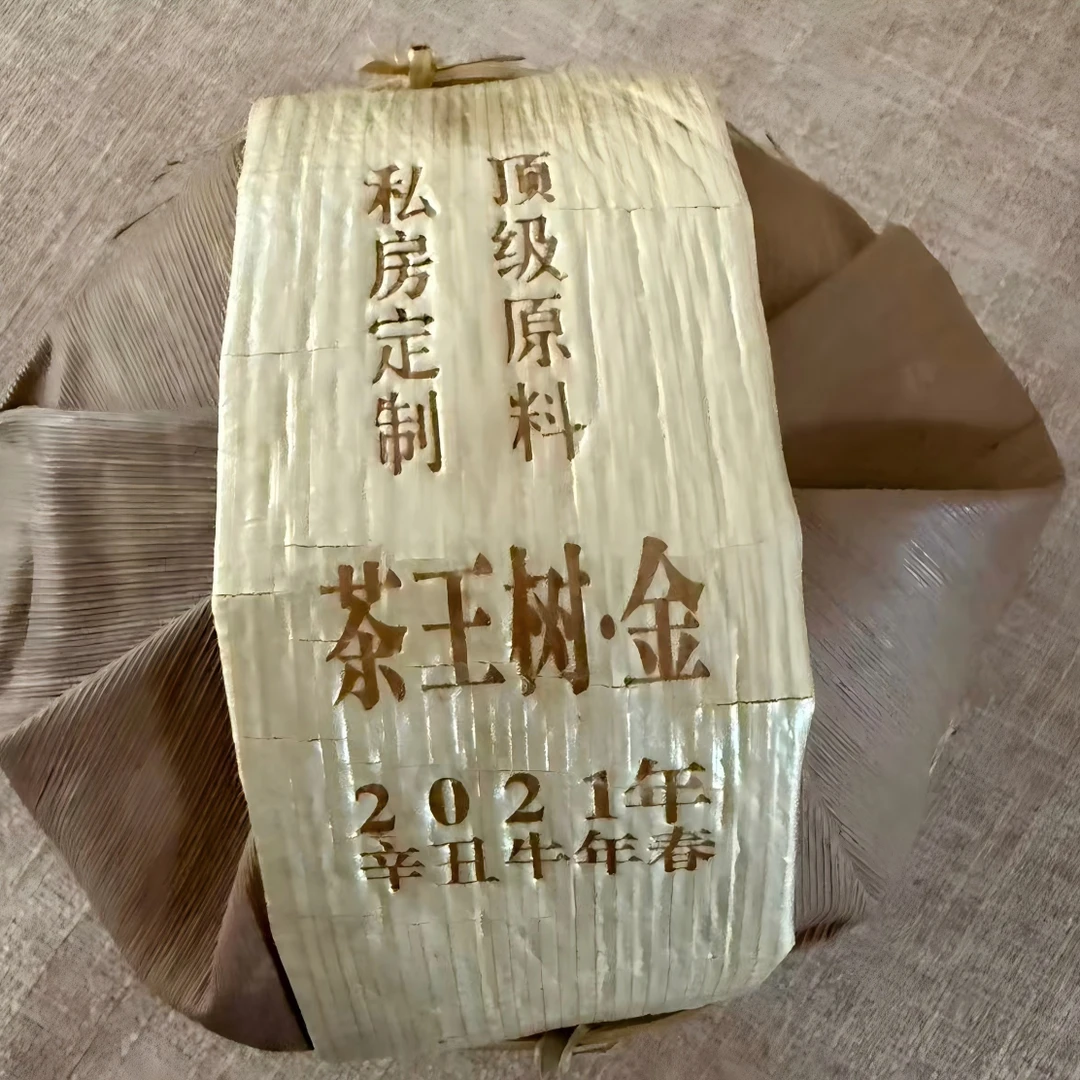 顶级原料
私房定制
茶王树·金
2021年
辛丑牛年春